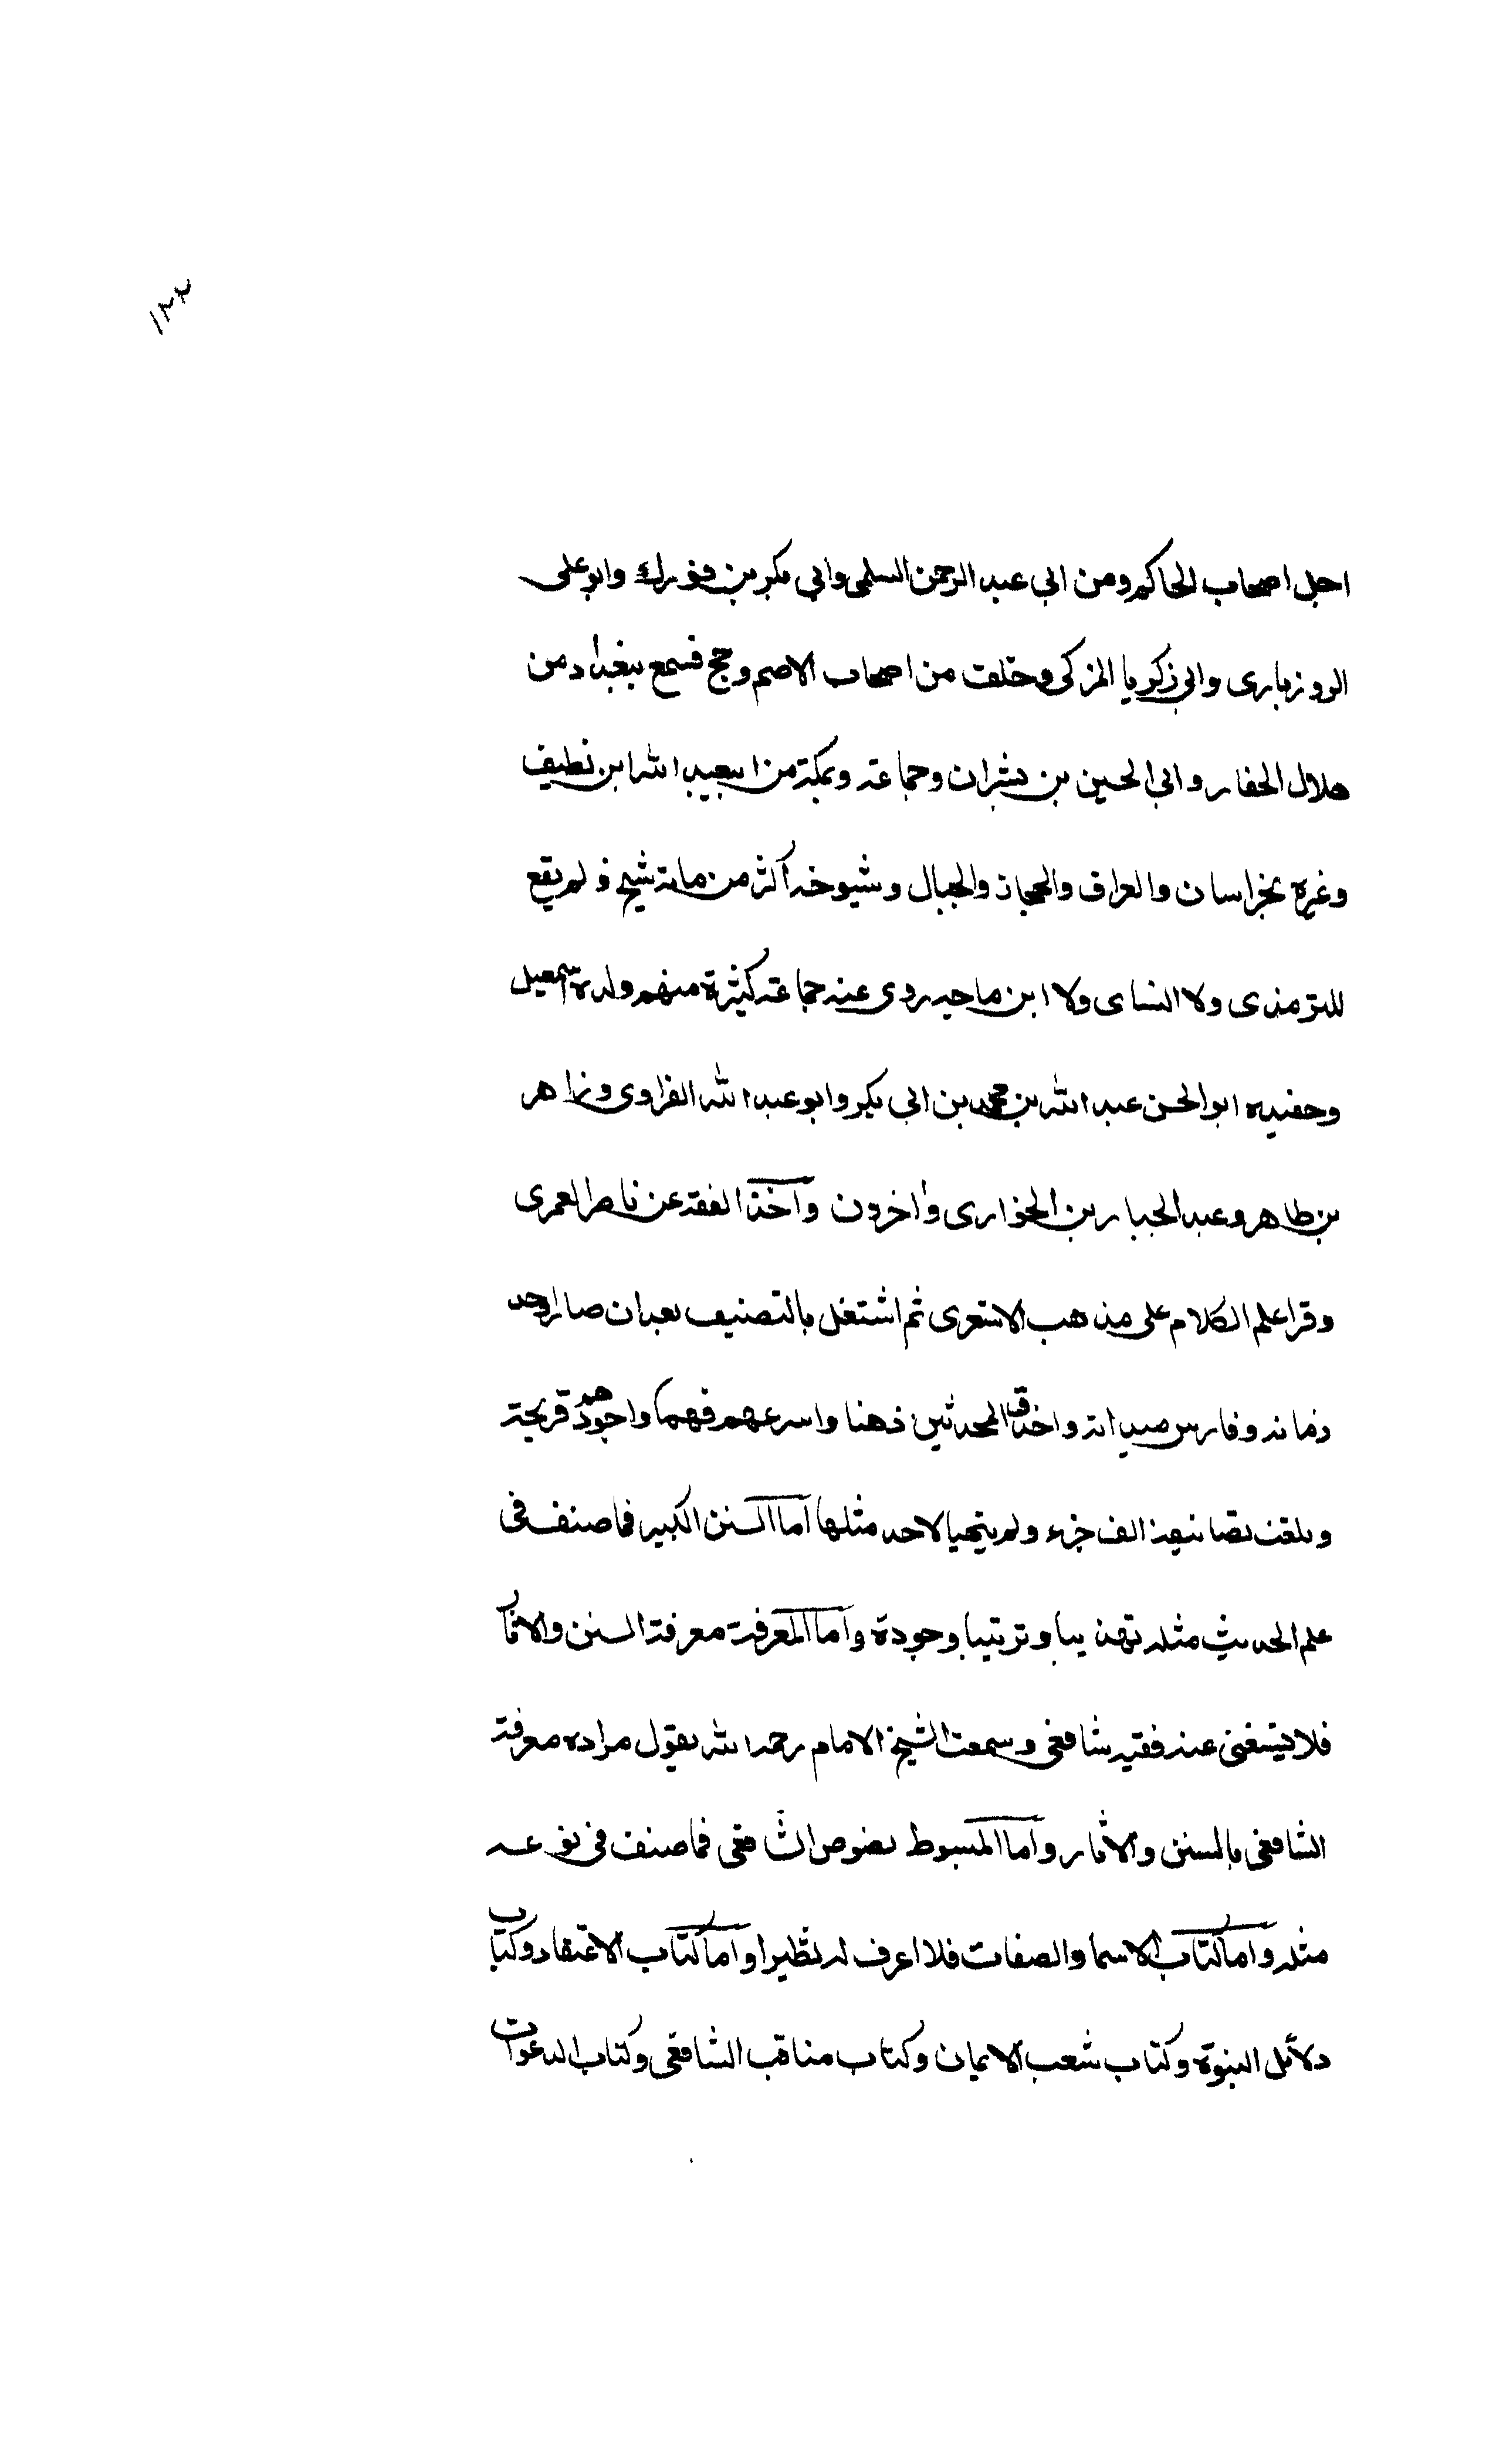 ١٢٢
اجل اصحاب الحاكم ومن ابي عبد الرحمن السلمى وابي بكر بن فورك وابو على
الروزبارى وابي زكريا المزكى وخلق من اصحاب الاصم وحج فسمع ببغداد من
هلال الحفار وابي الحسين بن بشران وجماعة وبمكة من ابن عبد الله ابن نطيف
وغيره بخراسان والعراق والحجاز والجبال وشيوخه اكثر من مائة شيخ ولم يقع
للترمذى ولا النساى ولا ابن ماجه روى عنه جماعة كثيرة منهم ولده اسمعيل
وحفيده ابو الحسن عبد الله بن محمد بن ابي بكر وابو عبد الله الفراوى وزاهر
بن طاهر وعبد الجبار بن الخوارى واخرون واخذ الفقه عن ناصر العمرى
وقرا علم الكلام على مذهب الاشعرى ثم اشتغل بالتصنيف بعد ان صار اوحد
زمانه وفارس ميدانه واحذق المحدثين ذهنا واسرعهم فهما واجودهم قريحة
وبلغت تصانيفه الف جزء ولم يتهيا لاحد مثلها اما السنن الكبير فما صنف فى
علم الحديث مثله تهذيبا وترتيبا وجودة واما المعرفة معرفة السنن والاثار
فلا يستغنى عنه فقيه شافعى وسمعت الشيخ الامام رحمه الله يقول مراده معرفة
الشافعى بالسنن والاثار واما المبسوط نصوص الشافعى فما صنف فى نوعه
مثله واما كتاب الاسما والصفات فلا اعرف له نظيرا واما كتاب الاعتقاد وكتاب
دلائل النبوة وكتاب شعب الايمان وكتاب مناقب الشافعى وكتاب الدعوات